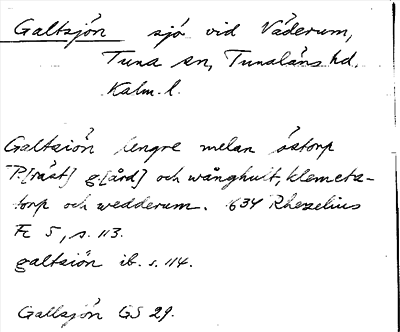 Galtsjön sjö vid Väderum,
Tuna sn, Tunaläns hd.
Kalm. l.
Galtsiön lengre melan östorp
P[räst] g[ård] och wånghult, klemets-
torp och wedderum. 1634 Rhezelius
Fc 5, s. 113.
galtsiön ib. s. 114.
Galtsjön GS 29.